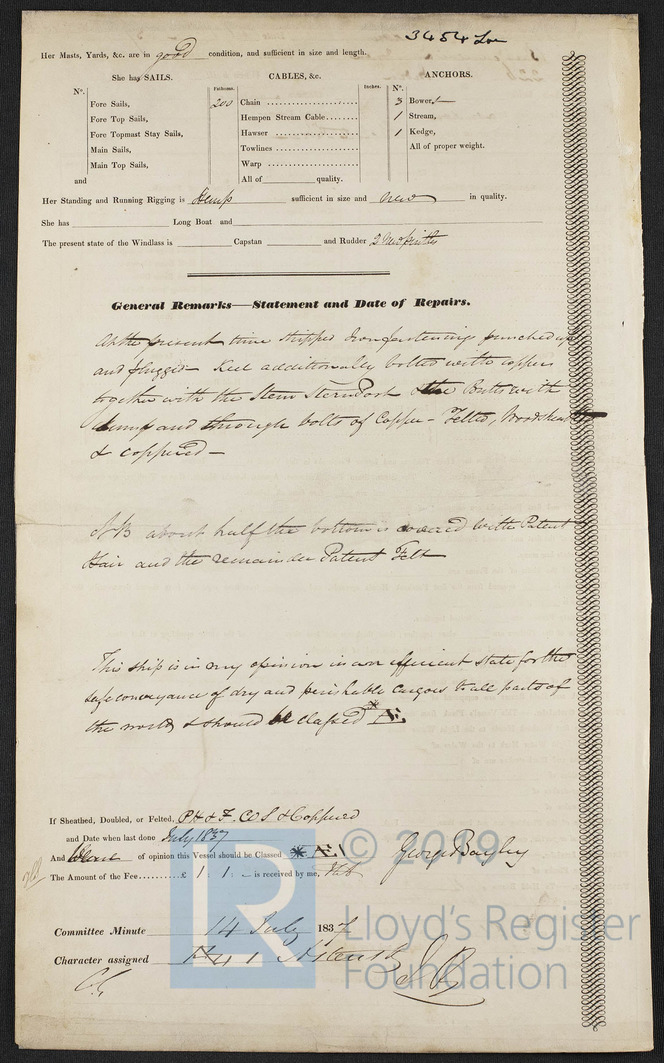 3454 Lon
Her Masts, Yards, &c. are in good condition, and sufficient in size and length.
She has SAILS.
CABLES, &c.
ANCHORS.
N°.
Fathoms.
Inches.
N°.
Fore Sails,
200 Chain
3 Bowers
Fore Top Sails,
Hempen Stream Cable
1 Stream,
Fore Topmast Stay Sails,
Hawser
1 Kedge,
Main Sails,
Towlines
All of proper weight.
Main Top Sails,
Warp
and
All of quality.
Her Standing and Running Rigging is Hemp sufficient in size and new in quality.
She has Long Boat and
The present state of the Windlass is Capstan and Rudder 2 New
General Remarks—Statement and Date of Repairs.
At the present time stripped Iron fastenings punched up
and plugged - Keel additionally bolted with copper
together with the Stem Stern Post & the Butts with
and through bolts of Copper - Felted, Woodsheathed
& coppered -
NB about half the bottom is covered with Patent
Hair and the remainder Patent Felt
This ship is in my opinion in an efficient state for the
safe conveyance of dry and perishable cargoes to all parts of
the world & should be classed * Æ
If Sheathed, Doubled, or Felted, PH & F. WS & Coppered
and Date when last done July 1837
And I am of opinion this Vessel should be Classed * Æ 1
George Bayley
The Amount of the Fee £ 1 : 1 : - is received by me,
Committee Minute 14 July 1837
Character assigned
© 2019
Lloyd's Register
Foundation
LR